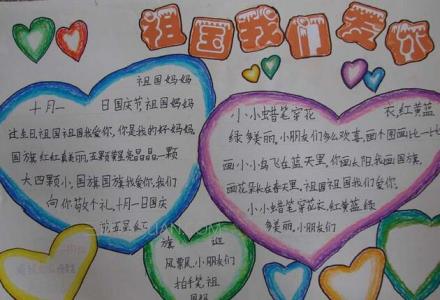 祖国我们爱你
祖国妈妈
十月一 日国庆节祖国妈妈
过生日祖国祖国我爱你,你是我的好妈妈
国旗红红真美丽,五颗黄星亮晶晶一颗
大四颗小,国旗国旗我爱你,我们
向你敬个礼,十月一日国庆
小小蜡笔穿花 衣,红黄蓝
绿多美丽,小朋友们多么欢喜,画个图画比一比
画小小鸟飞在蓝天里,你画太阳,我画国旗,
画花朵长在春天里,祖国祖国我们爱你,
小小蜡笔穿花衣,红黄蓝绿
多美丽,小朋友们
旗
风飘飘,小朋友们
拍手笔祖